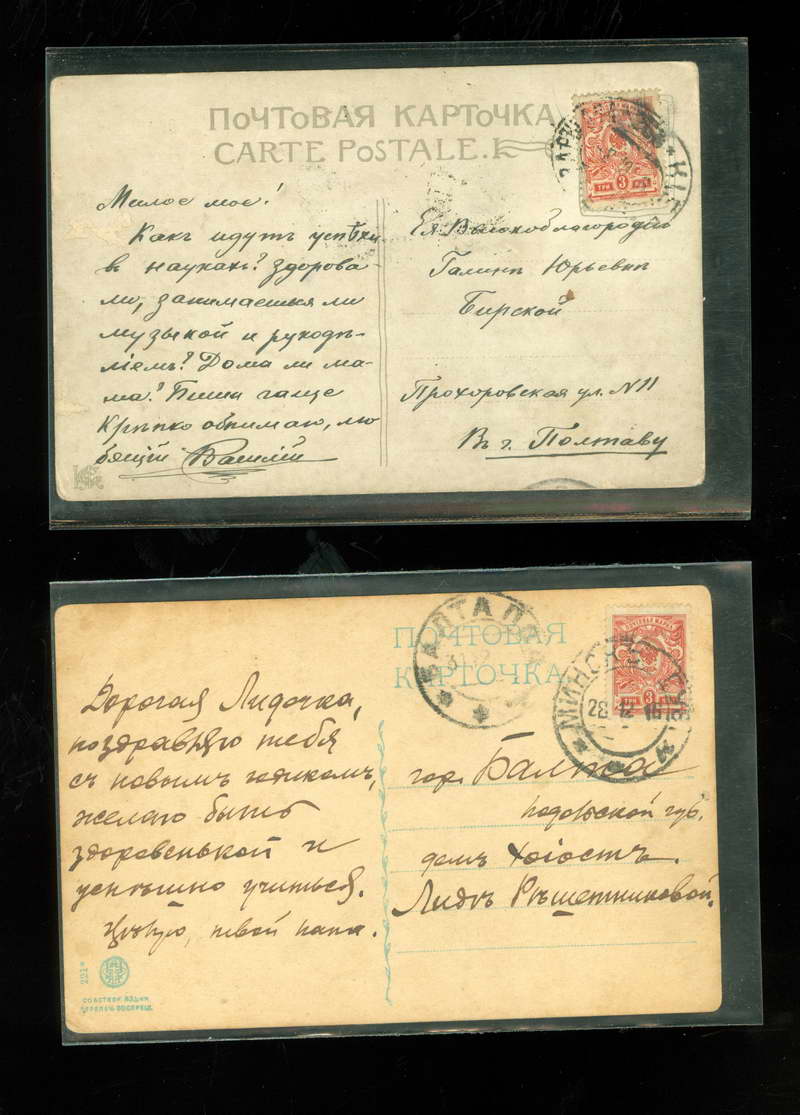 ПОЧТОВАЯ КАРТОЧКА
CARTE POSTALE.
Милое мое!
Какъ идутъ успѣхи
въ наукахъ? Здорова-
ли, занимаешься ли
музыкой и рукодѣ-
ліемъ? Дома ли ма-
ма? Пиши чаще
Крѣпко обнимаю, лю
бящій Василій
Ея Высокоблагородію
Галинѣ Юрьевнѣ
Бирской
Прохоровская ул. N 11
Въ г. Полтаву
ТРИ 3 КОП
ПОЧТОВАЯ
КАРТОЧКА
БАЛТА ПОД
ПОЧТОВАЯ МАРКА
3
МИНСКЪ
28 12 16
Дорогая Лидочка,
поздравляю тебя
съ новымъ годикомъ,
желаю быть
здоровенькой и
успѣшно учиться.
Цѣлую, твой папа.
гор. Балта
Подольской губ.
домъ
Лидѣ Рѣшетниковой.
221